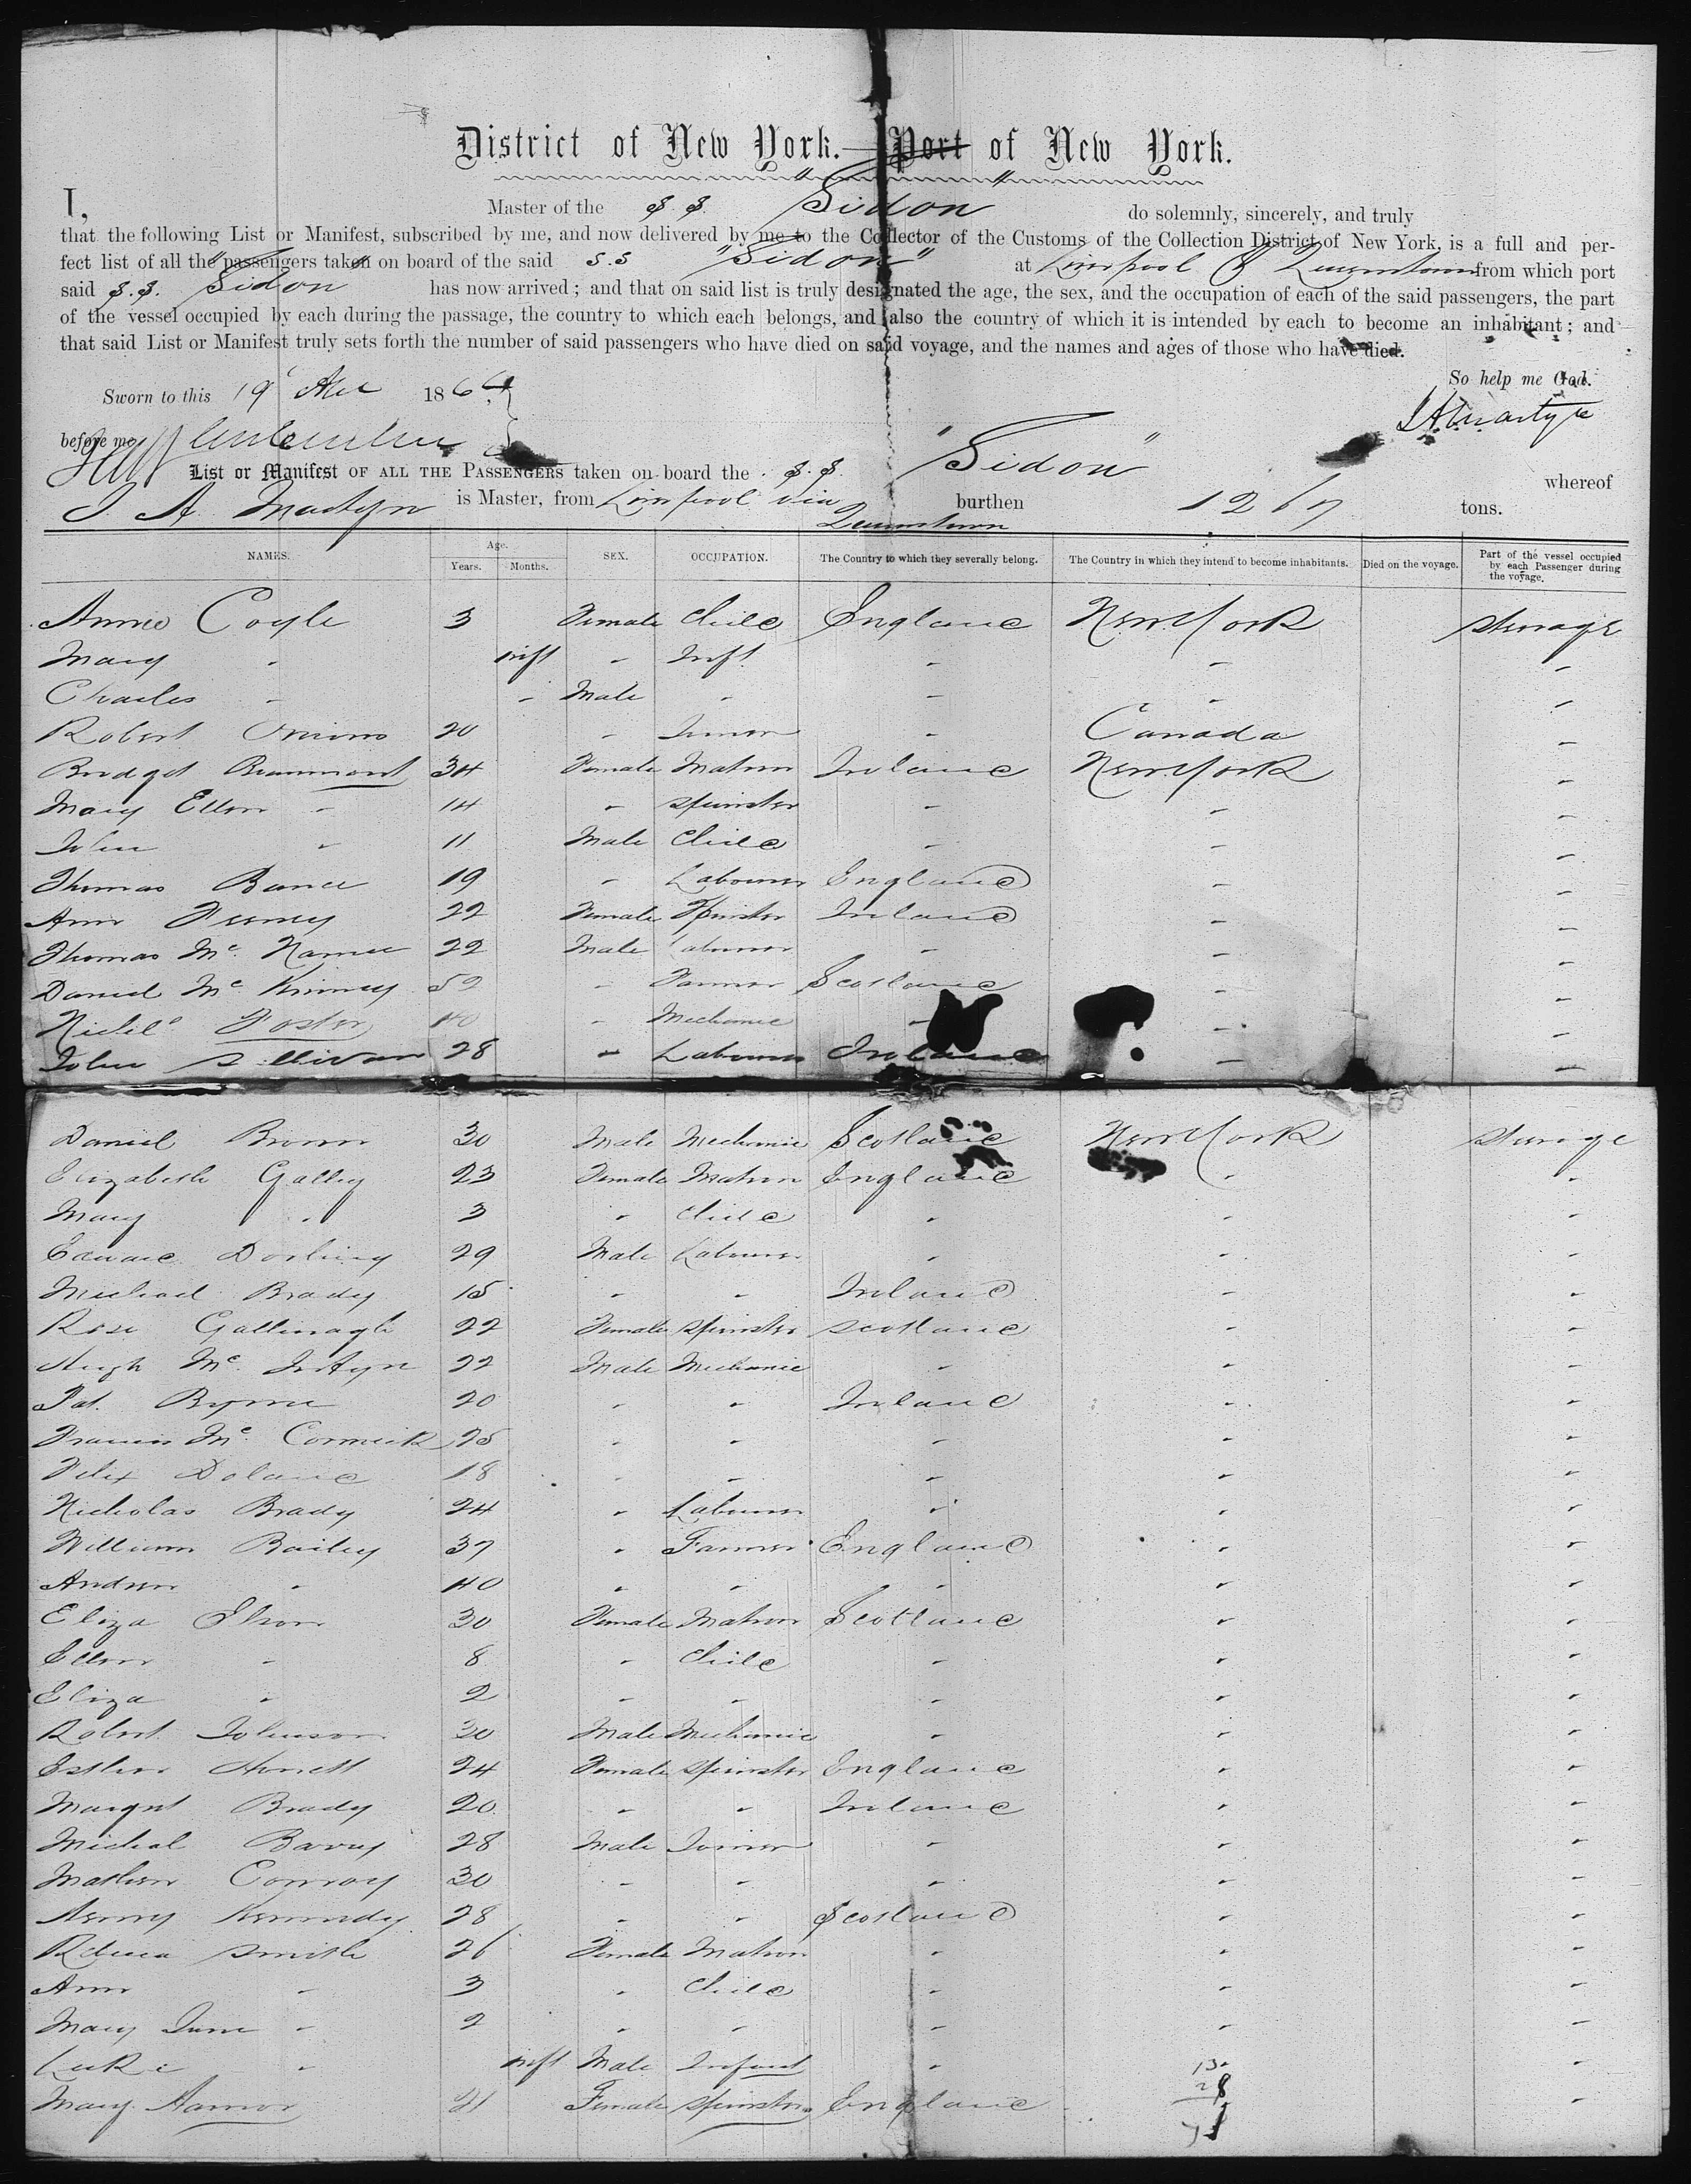 District of New York.—Port of New York.
I, Master of the S.S. "Sidon" do solemnly, sincerely, and truly
that the following List or Manifest, subscribed by me, and now delivered by me to the Collector of the Customs of the Collection District of New York, is a full and per-
fect list of all the passengers taken on board of the said S.S "Sidon" at Liverpool & Queenstown from which port
said S.S. "Sidon" has now arrived; and that on said list is truly designated the age, the sex, and the occupation of each of the said passengers, the part
of the vessel occupied by each during the passage, the country to which each belongs, and also the country of which it is intended by each to become an inhabitant; and
that said List or Manifest truly sets forth the number of said passengers who have died on said voyage, and the names and ages of those who have died.
So help me God.
Sworn to this 19 1866
J A Martyn
before me
List or Manifest OF ALL THE PASSENGERS taken on board the S.S. "Sidon" whereof
J. A. Martyn is Master, from Liverpool via Queenstown burthen 1267 tons.
NAMES. Age. Years. Months. SEX. OCCUPATION. The Country to which they severally belong. The Country in which they intend to become inhabitants. Died on the voyage. Part of the vessel occupied by each Passenger during the voyage.
Annie Coyle 3 Female Child England New York Steerage
Mary " inft " Inft. " " "
Charles " " Male " " " "
Robert 20 " " Canada "
Bridget Beaumont 34 Female Matron Ireland New York "
Mary Ellen " 14 " Spinster " " "
John " 11 Male Child " " "
Thomas Bance 19 " Labourer England " "
Ann Feeney 22 Female Spinster Ireland " "
Thomas Mc Namee 22 Male Labourer " " "
Daniel Mc Kinney 52 " Farmer Scotland " "
Nichls Foster 40 " Mechanic " " "
John Sullivan 28 " Labourer Ireland " "
Daniel Brown 30 Male Mechanic Scotland New York Steerage
Elizabeth Galley 23 Female Matron England " "
Mary " 3 " Child " " "
Edward Dorling 29 Male Labourer " " "
Michael Brady 15 " " Ireland " "
Rose Gallinagh 22 Female Spinster Scotland " "
Hugh Mc Intyre 22 Male Mechanic " " "
Pat. Byrne 20 " " Ireland " "
Francis Mc Cormick 25 " " " " "
Felix Doland 18 " " " " "
Nicholas Brady 24 " Labourer " " "
William Bailey 37 " Farmer England " "
Andrew " 40 " " " " "
Eliza 30 Female Matron Scotland " "
Ellen " 8 " Child " " "
Eliza " 2 " " " " "
Robert Johnson 30 Male Mechanic " " "
Esther 24 Female Spinster England " "
Margret Brady 20 " " Ireland " "
Michal Barry 28 Male Joiner " " "
Mathew Conroy 30 " " " " "
Henry Kennedy 28 " " Scotland " "
Rebecca Smith 26 Female Matron " " "
Ann " 3 " Child " " "
Mary Jane " 2 " " " " "
Luke " inft Male Infant " "
Mary Hamor 21 Female Spinster England "
13
28